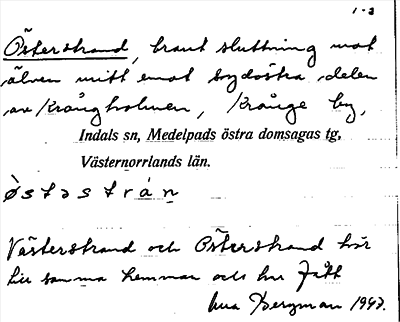 1-2
Österstrand, brant sluttning mot
älven mitt emot sydöstra delen
av Krångholmen, Krånge by,
Indals sn, Medelpads östra domsagas tg,
Västernorrlands län.
östəstrán
Västerstrand och Österstrand hör
till samma hemman och
Bergman 1943.